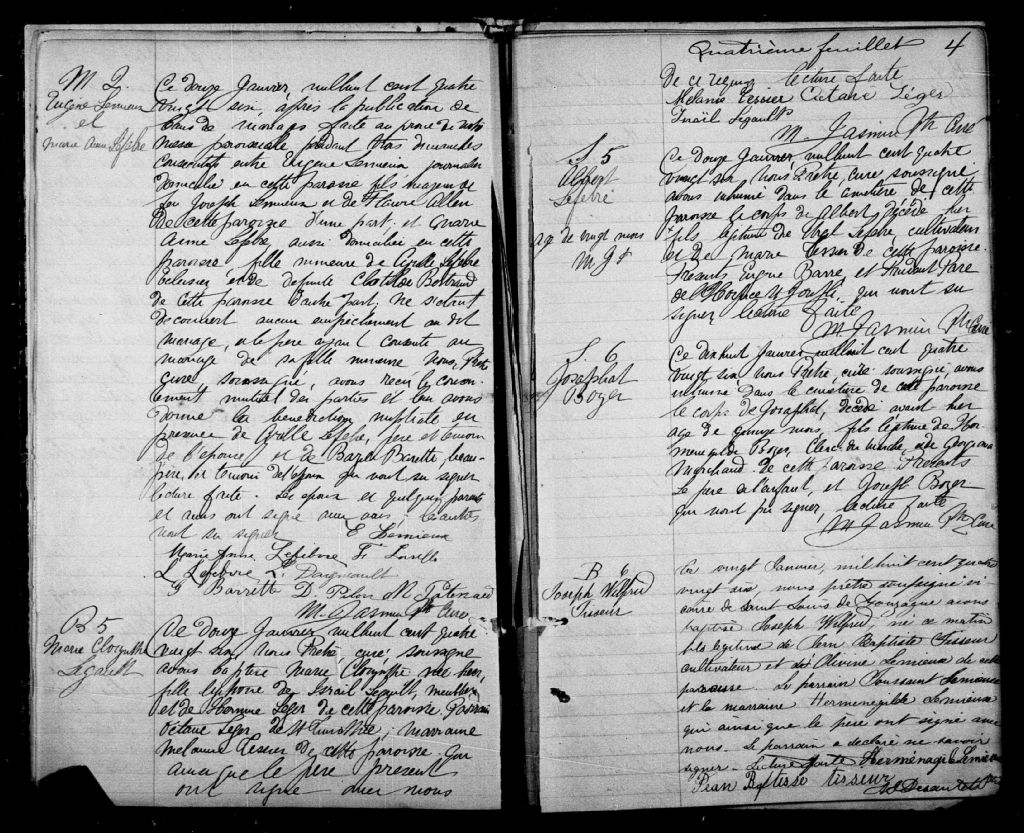 M 2.
Eugène Lemieux
et
Marie Anne Lefebre
Ce douze Janvier, milhuit cent quatre
vingt six après la publication de
bans de mariage faite au prone de notre
messe paroissiale pendant trois dimanches
consecutifs entre Eugène Lemieux journalier
domicilié en cette paroisse fils majeur de
feu Joseph Lemieux et de Flavie Allen
de cette paroisse d'une part, et Marie
Anne Lefebre, aussi domiciliée en cette
paroisse fille mineure de Lefebre
et de defunte Clothilde Bertrand
de cette paroisse d'autre part, ne s'etant
decouvert aucun empêchement au dit
mariage, et le père ayant consenti au
mariage de sa fille mineure Nous, Prêtre
Curé, soussigné, avons reçu le consen-
tement mutuel des parties et leur avons
donné la benediction nuptiale en
presence de Lefebre, père et temoin
de l'epouse, et de Barette, beau-
père, et temoin de l'epoux qui n'ont su signer
lecture faite. Les epoux et quelques parents
et amis ont signé avec nous; les autres
n'ont su signer. E Lemieux
Marie Anne Lefebvre F.
L Lefebvre L. Daigneault
Barrette D. Pilon
M. Jasmin Ptr Curé
B 5
Marie
Legault
Ce douze Janvier milhuit cent quatre
vingt six, nous Prêtre, curé soussigné
avons baptisé Marie née hier,
fille légitime de Israïl Legault,
et de Leger de cette paroisse. Parrain
Octave Leger de St Timothée; marraine
Melanie Tessier de cette paroisse. Qui
ainsi que le père present
ont signé avec nous
Quatrième feuillet 4
De ce requis lecture faite
Mélanie Tessier Octave Léger
Israïl Legault
M. Jasmin Ptr Curé
S 5
Albert
Lefebre
age de vingt mois
Ce douze Janvier, milhuit cent quatre
vingt six, Nous Prêtre, curé soussigné
avons inhumé dans le cimetière de cette
paroisse le corps de Albert, décédé hier
fils légitime de Lefebre cultivateur
et de Marie Tessier de cette paroisse.
Présents Eugène Barre, et
qui n'ont su
signer lecture faite
M Jasmin Ptr Curé
S. 6
Josaphat
Boyer
Ce dixhuit Janvier, milhuit cent quatre
vingt six nous Prêtre curé soussigné, avons
inhumé dans le cimetière de cette paroisse
le corps de Josaphat, décédé avant hier
age de quinze mois, fils légitime de Her
menegilde Boyer, et de Georgiana
Marchand de cette paroisse. Présents
Le père de l'enfant, et Joseph Boyer
qui n'ont pu signer, lecture faite
M Jasmin Ptr Curé
B 6
Joseph Wilfrid
Tisseur
Ce vingt Janvier, mil huit cent quatre
vingt six, nous prêtre soussigné vi
caire de Saint Louis de Gonzague avons
baptisé Joseph Wilfrid, né ce matin
fils légitime de Jean Baptiste Tisseur
cultivateur et de Olivine Lemieux de cette
paroisse. Le parrain Toussaint Lemieux
et la marraine Herménégilde Lemieux
qui ainsi que le père ont signé avec
nous. Le parrain a declaré ne savoir
signer. Lecture faite Herménégilde Lemieux
Jean Batisse tisseur